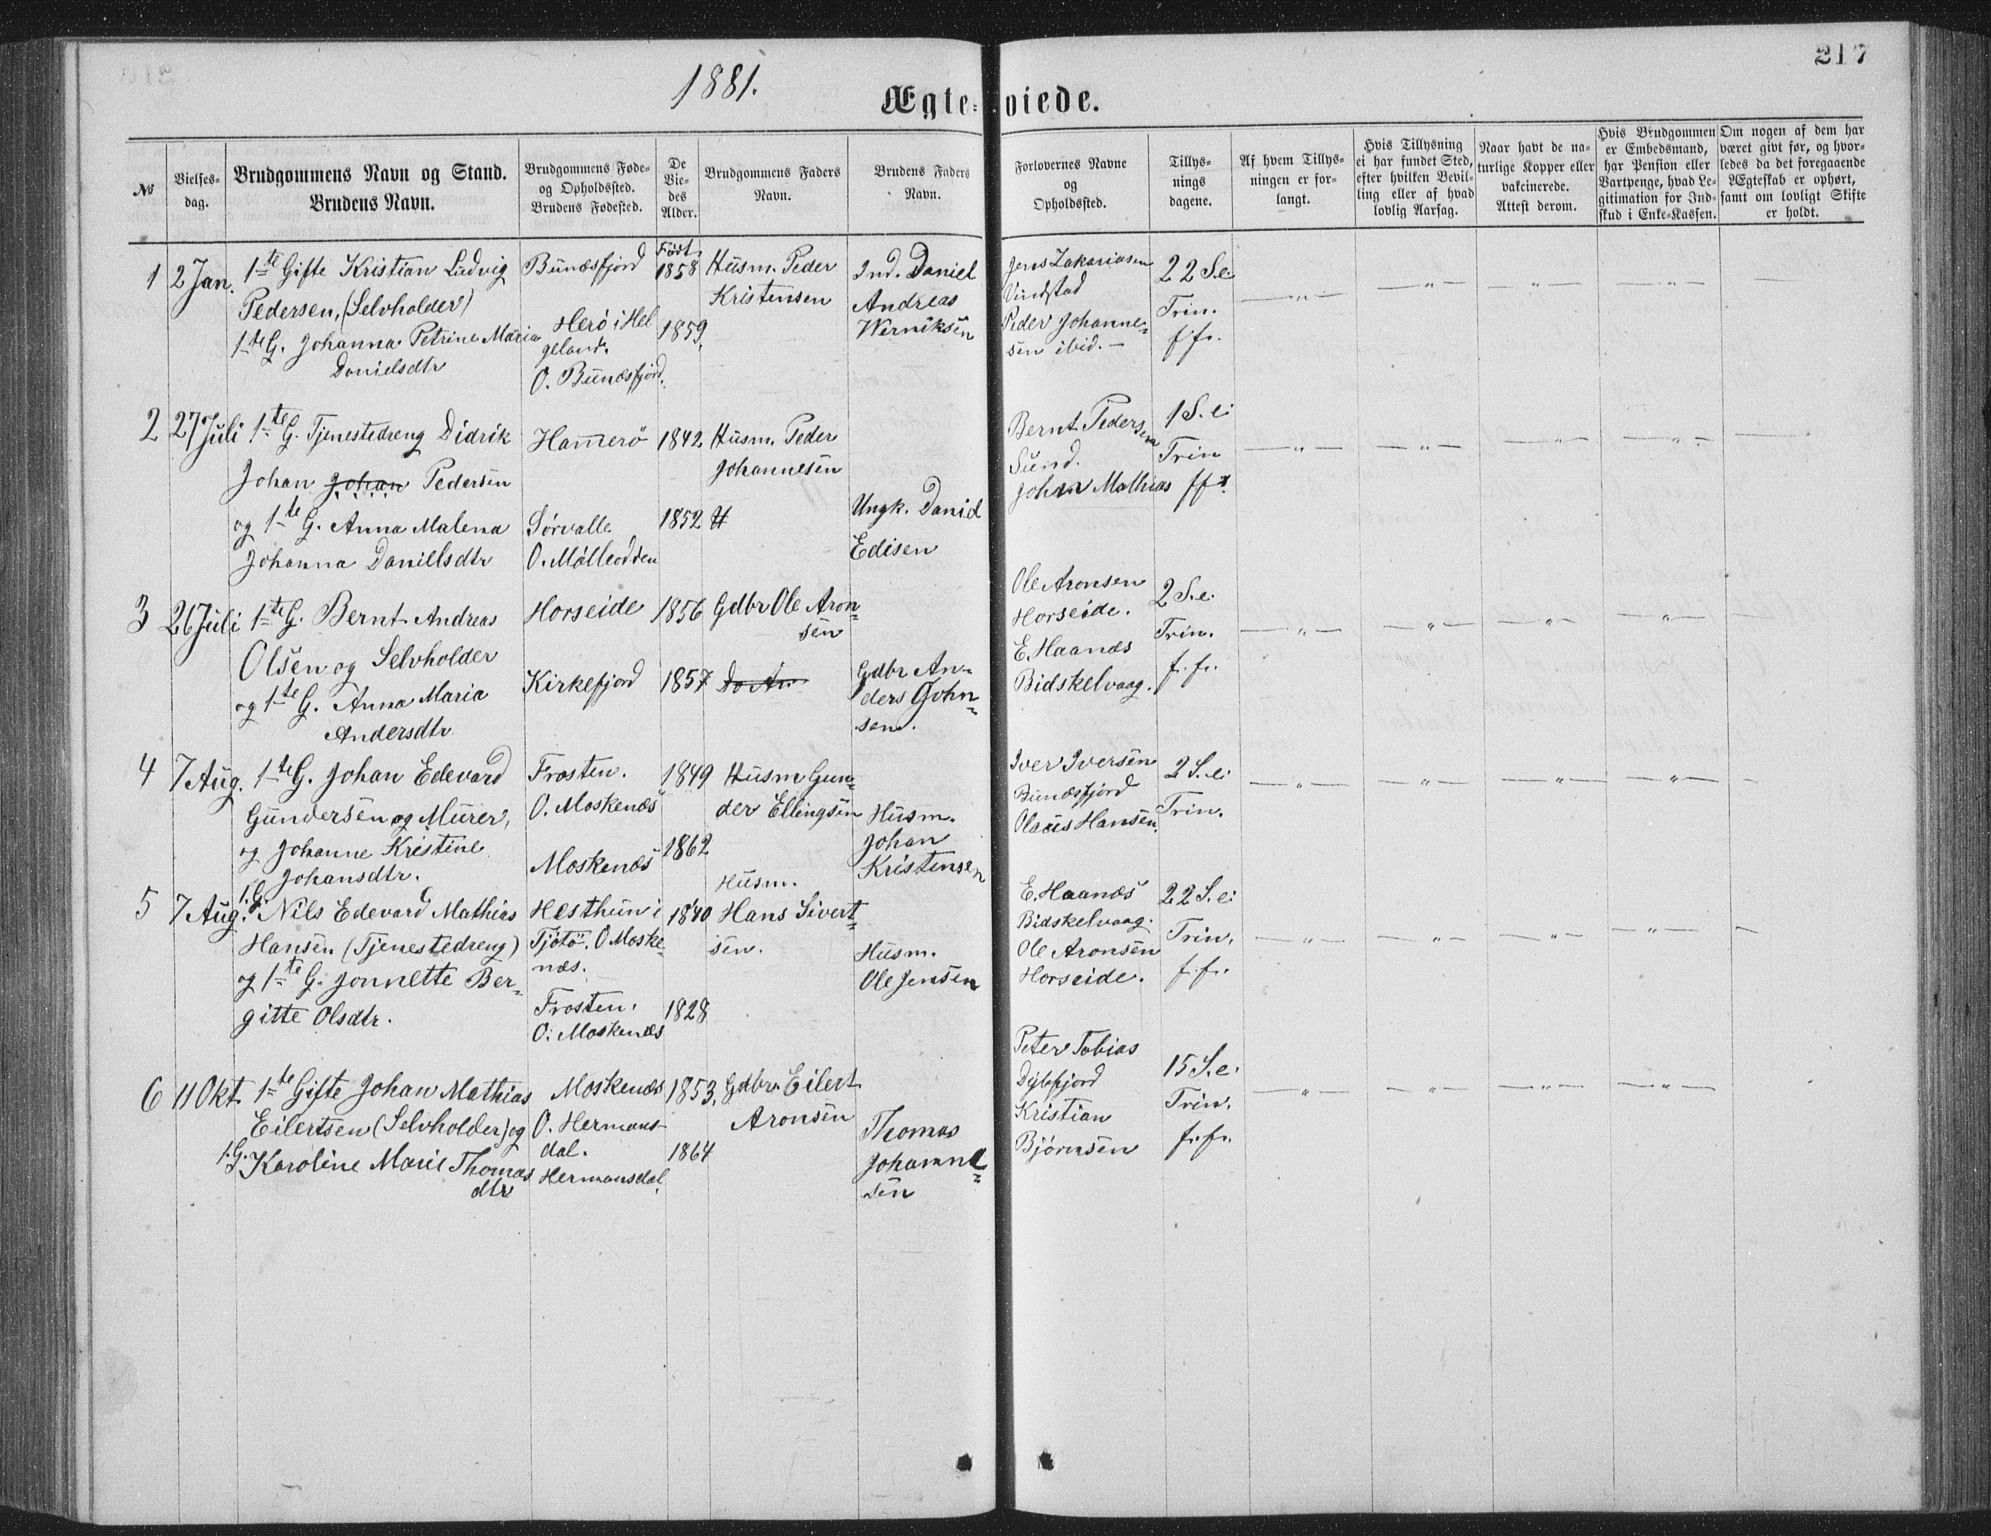 217
1881.
Ægte-viede.
№
Vielses-
dag.
Brudgommens Navn og Stand.
Brudens Navn.
Brudgommens Føde-
og Opholdssted.
Brudens Fødested.
De
Vie-
des
Alder.
Brudgommens Faders
Navn.
Brudens Faders
Navn.
Forlovernes Navne
og
Opholdssted.
Tillys-
nings
dagene.
Af hvem Tillys-
ningen er for-
langt.
Hvis Tillysning
ei har fundet Sted,
efter hvilken Bevil-
ling eller af hvad
lovlig Aarsag.
Naar havt de na-
turlige Kopper eller
vakcinerede.
Attest derom.
Hvis Brudgommen
er Embedsmand,
har Pension eller
Vartpenge, hvad Le-
gitimation for Ind-
skud i Enke-Kassen.
Om nogen af dem har
været givt før, og hvor-
ledes da det foregaaende
Ægteskab er ophørt,
samt om lovligt Skifte
er holdt.
1
2 Jan.
1ste Gifte Kristian Ludvig
Pedersen, (Selvholder)
1ste G. Johanna Petrine Maria
Danielsdtr
Bunæsfjord
Herö i Hel
geland.
O. Bunæsfjord.
Født
1858
1859.
Husm. Peder
Kristensen
Ind. Daniel
Andreas
Werniksen
Jens Zakariasen
Vindstad
Peder Johanne-
sen ibid. —
22 S. e.
Trin.
f. fr.
2
27 Juli
1ste G. Tjenestedreng Didrik
Johan Johan Pedersen
og 1ste G. Anna Malena
Johanna Daniellsdtr
Hamerö
Sörvalle
O. Mölleodden
1842
1852
Husm. Peder
Johannesen
H
Ungk. Daniel
Edisen
Bernt Pedersen
Sund.
Johan Mathias
1 S. e.
Trin
f. fr.
3
26 Juli
1ste G. Bernt Andreas
Olsen og Selvholder
og 1ste G. Anna Maria
Andersdtr
Horseide
Kirkefjord
1856
1857
Gdbr Ole Aron-
sen
Do An
Gdbr An-
ders John-
sen.
Ole Aronsen
Horseide.
E. Haanæs
Bidskelvaag.
2 S. e.
Trin.
f. fr.
4
7 Aug.
1ste G. Johan Edevard
Gundersen og Murer,
og Johanne Kristine
Johansdtr.
Frosten.
O. Moskenæs
Moskenæs
1849
1862
Husm Gun-
der Ellingsen
Husm.
Johan
Kristensen
Iver Iversen
Bunæsfjord
Olaus Hansen.
2 S. e.
Trin.
5
7 Aug.
1. G. Nils Edevard Mathias
Hansen (Tjenestedreng)
og 1ste G. Jonnette Ber-
gitte Olsdtr.
Hesthun i
Tjötö. O Moske-
næs.
Frosten.
O. Moskenæs
1840
1828
Husm.
Hans Sivert-
sen.
Husm.
Ole Jensen
E. Haanæs
Bidskelvaag.
Ole Aronsen
Horseide.
22 S. e.
Trin.
f. fr.
6
11 Okt
1ste Gifte Johan Mathias
Eilertsen (Selvholder) og
1. G. Karoline Marie Thomas
dtr
Moskenæs
O. Hermans-
dal.
Hermansdal.
1853.
1864
Gdbr Eilert
Aronsen
Thomas
Johanne-
sen
Peter Tobias
Dybfjord
Kristian
Björnsen
15 S. e.
Trin.
f. fr.